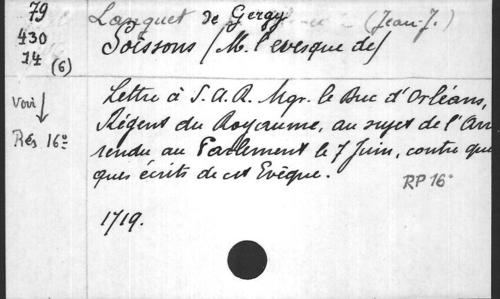 79
430
14 (6)
Voir
Rés 16°
Languet de Gergy (Jean-J.)
Soissons (M. l'evesque de)
Lettre à S.A.R. Mgr. le Duc d'Orléans,
Régent du Royaume, au sujet de l'Arr
rendu au Parlement le 7 Juin, contre quel
ques écrits de cet Evêque.
RP 16°
1719.